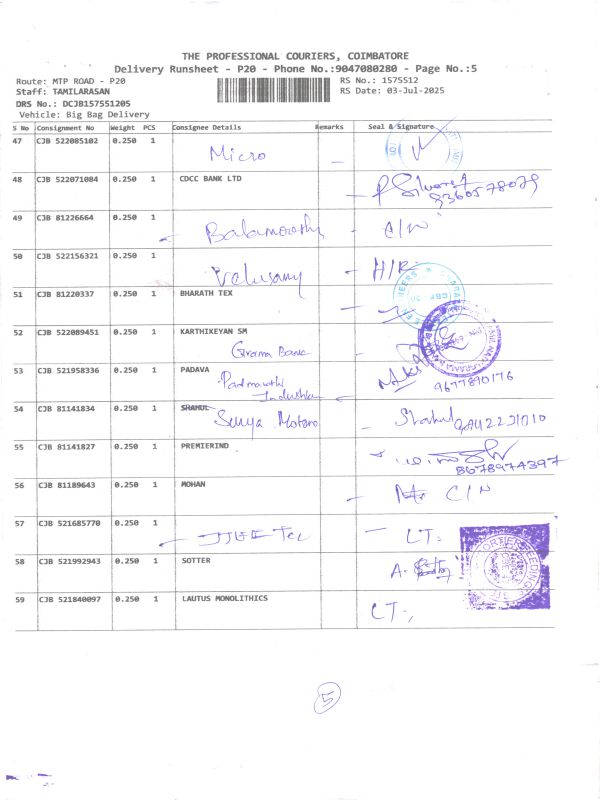 THE PROFESSIONAL COURIERS, COIMBATORE
Delivery Runsheet - P20 - Phone No.:9047080280 - Page No.:5
Route: MTP ROAD - P20 RS No.: 1575512
Staff: TAMILARASAN RS Date: 03-Jul-2025
DRS No.: DCJB157551205
Vehicle: Big Bag Delivery
S No Consignment No Weight PCS Consignee Details Remarks Seal & Signature
47 CJB 522085102 0.250 1 Micro
48 CJB 522071084 0.250 1 CDCC BANK LTD
9360578029
49 CJB 81226664 0.250 1 Balamoorthy C/N
50 CJB 522156321 0.250 1 Velusamy H/R
51 CJB 81220337 0.250 1 BHARATH TEX
52 CJB 522089451 0.250 1 KARTHIKEYAN SM
Grama Bank
53 CJB 521958336 0.250 1 PADAVA
9677890176
54 CJB 81141834 0.250 1 SHAHUL
Surya Motors Shahul
55 CJB 81141827 0.250 1 PREMIERIND
8678974397
56 CJB 81189643 0.250 1 MOHAN C/N
57 CJB 521685770 0.250 1 LT.
58 CJB 521992943 0.250 1 SOTTER
59 CJB 521840097 0.250 1 LAUTUS MONOLITHICS LT.,
5